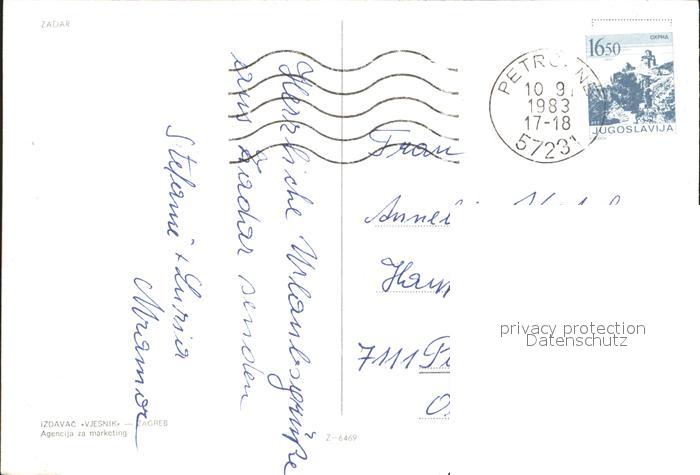 ZADAR
Herzliche Urlaubsgrüße
aus Zadar senden
Stefanie + Luzia
IZDAVAČ »VJESNIK« — ZAGREB
Agencija za marketing
Z-6469
10 9
1983
17-18
57231
1650
JUGOSLAVIJA
7111
privacy protection
Datenschutz